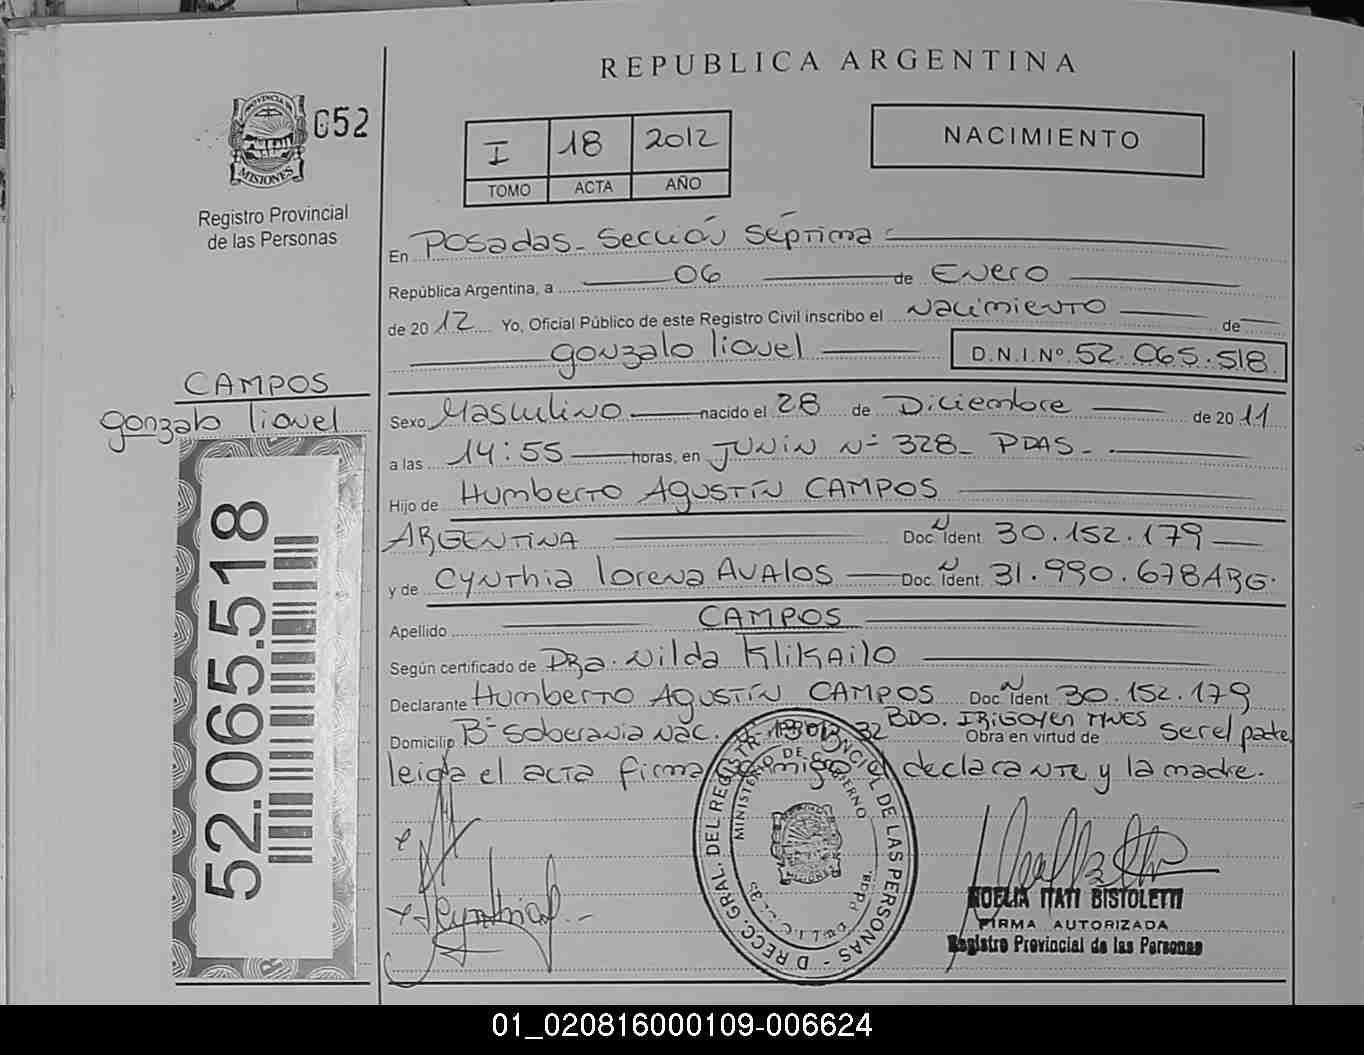 REPUBLICA ARGENTINA
PROVINCIA DE
MISIONES
052
Registro Provincial
de las Personas
I 18 2012
TOMO ACTA AÑO
NACIMIENTO
En Posadas - Sección Séptima
República Argentina, a 06 de Enero
de 2012 Yo, Oficial Público de este Registro Civil inscribo el Nacimiento de
gonzalo lionel D.N.I.Nº 52.065.518
CAMPOS
gonzalo lionel
52.065.518
Sexo Masculino nacido el 28 de Diciembre de 2011
a las 14:55 horas, en JUNIN Nº 328_ PDAS_
Hijo de Humberto AGUSTÍN CAMPOS
ARGENTINA Doc. Ident. 30.152.179
y de Cynthia lorena AVALOS Doc. Ident. 31.990.678 ARG.
Apellido CAMPOS
Según certificado de DRA. Nilda KliKAilo
Declarante Humberto AGUSTÍN CAMPOS Doc. Ident 30.152.179
Domicilio Bº Soberania Nac. 32 BDO. IRIGOYEN MNES Obra en virtud de ser el padre
leida el acta firma conmigo el declarante y la madre.
DRECC. GRAL. DEL REGISTR. PROVINCIAL DE LAS PERSONAS
MINISTERIO DE GOBIERNO
Cynthia
NOELIA ITATI BISTOLETTI
FIRMA AUTORIZADA
Registro Provincial de las Personas
01_020816000109-006624